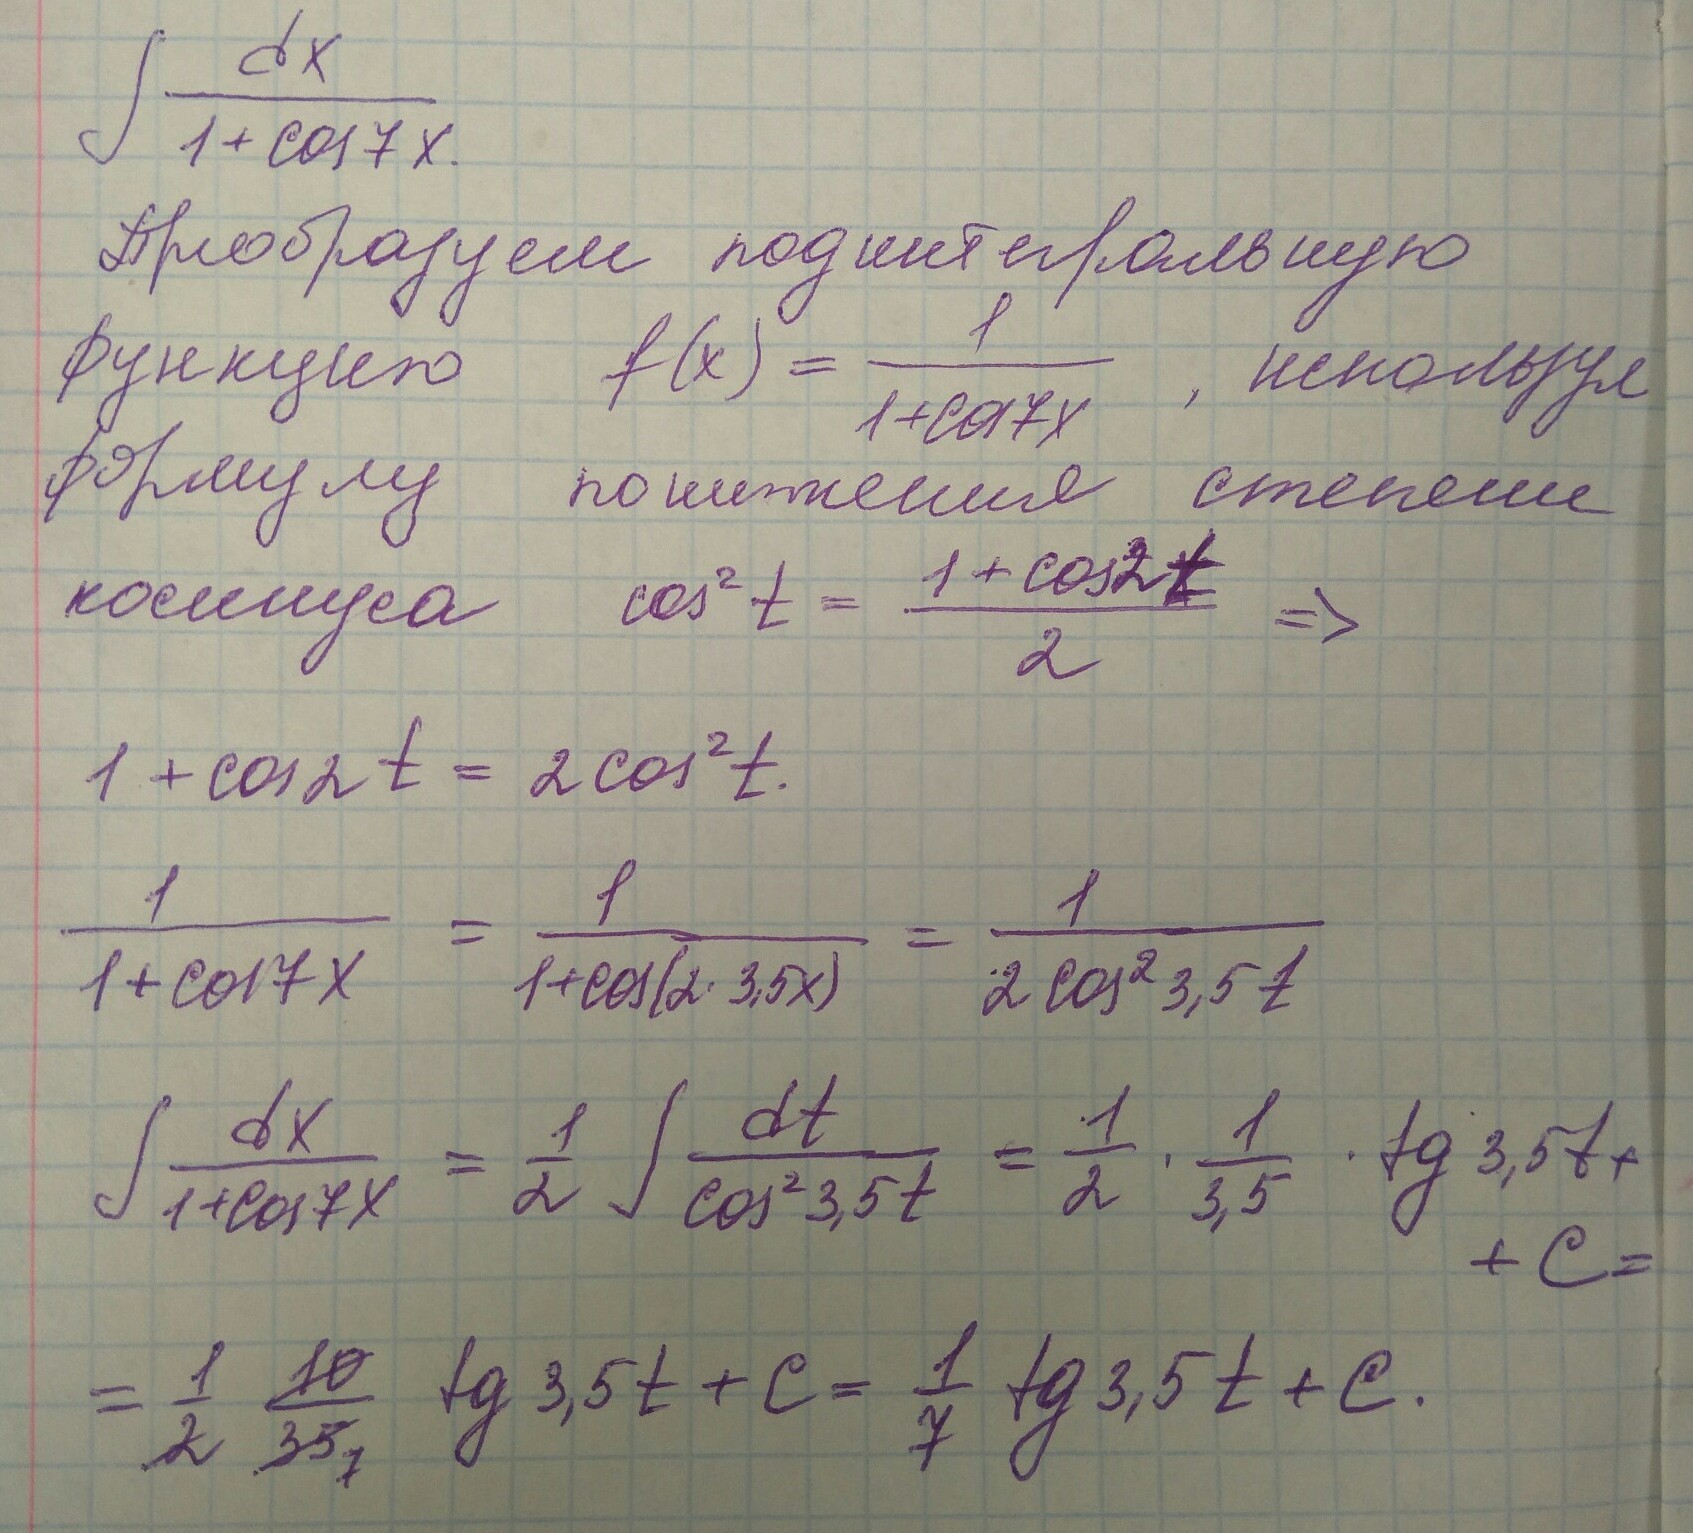 ∫ dx / (1 + cos 7x).
Преобразуем подынтегральную
функцию f(x) = 1 / (1+cos7x) , используя
формулу понижения степени
косинуса cos² t = (1 + cos2t) / 2 =>
1 + cos2t = 2cos²t.
1 / (1+cos7x) = 1 / (1+cos(2·3,5x)) = 1 / (2 cos² 3,5t)
∫ dx / (1+cos7x) = 1/2 ∫ dt / (cos² 3,5t) = 1/2 · 1/3,5 · tg 3,5t +
+ C =
= 1/2 10/35 7 tg 3,5t + C = 1/7 tg 3,5t + C.